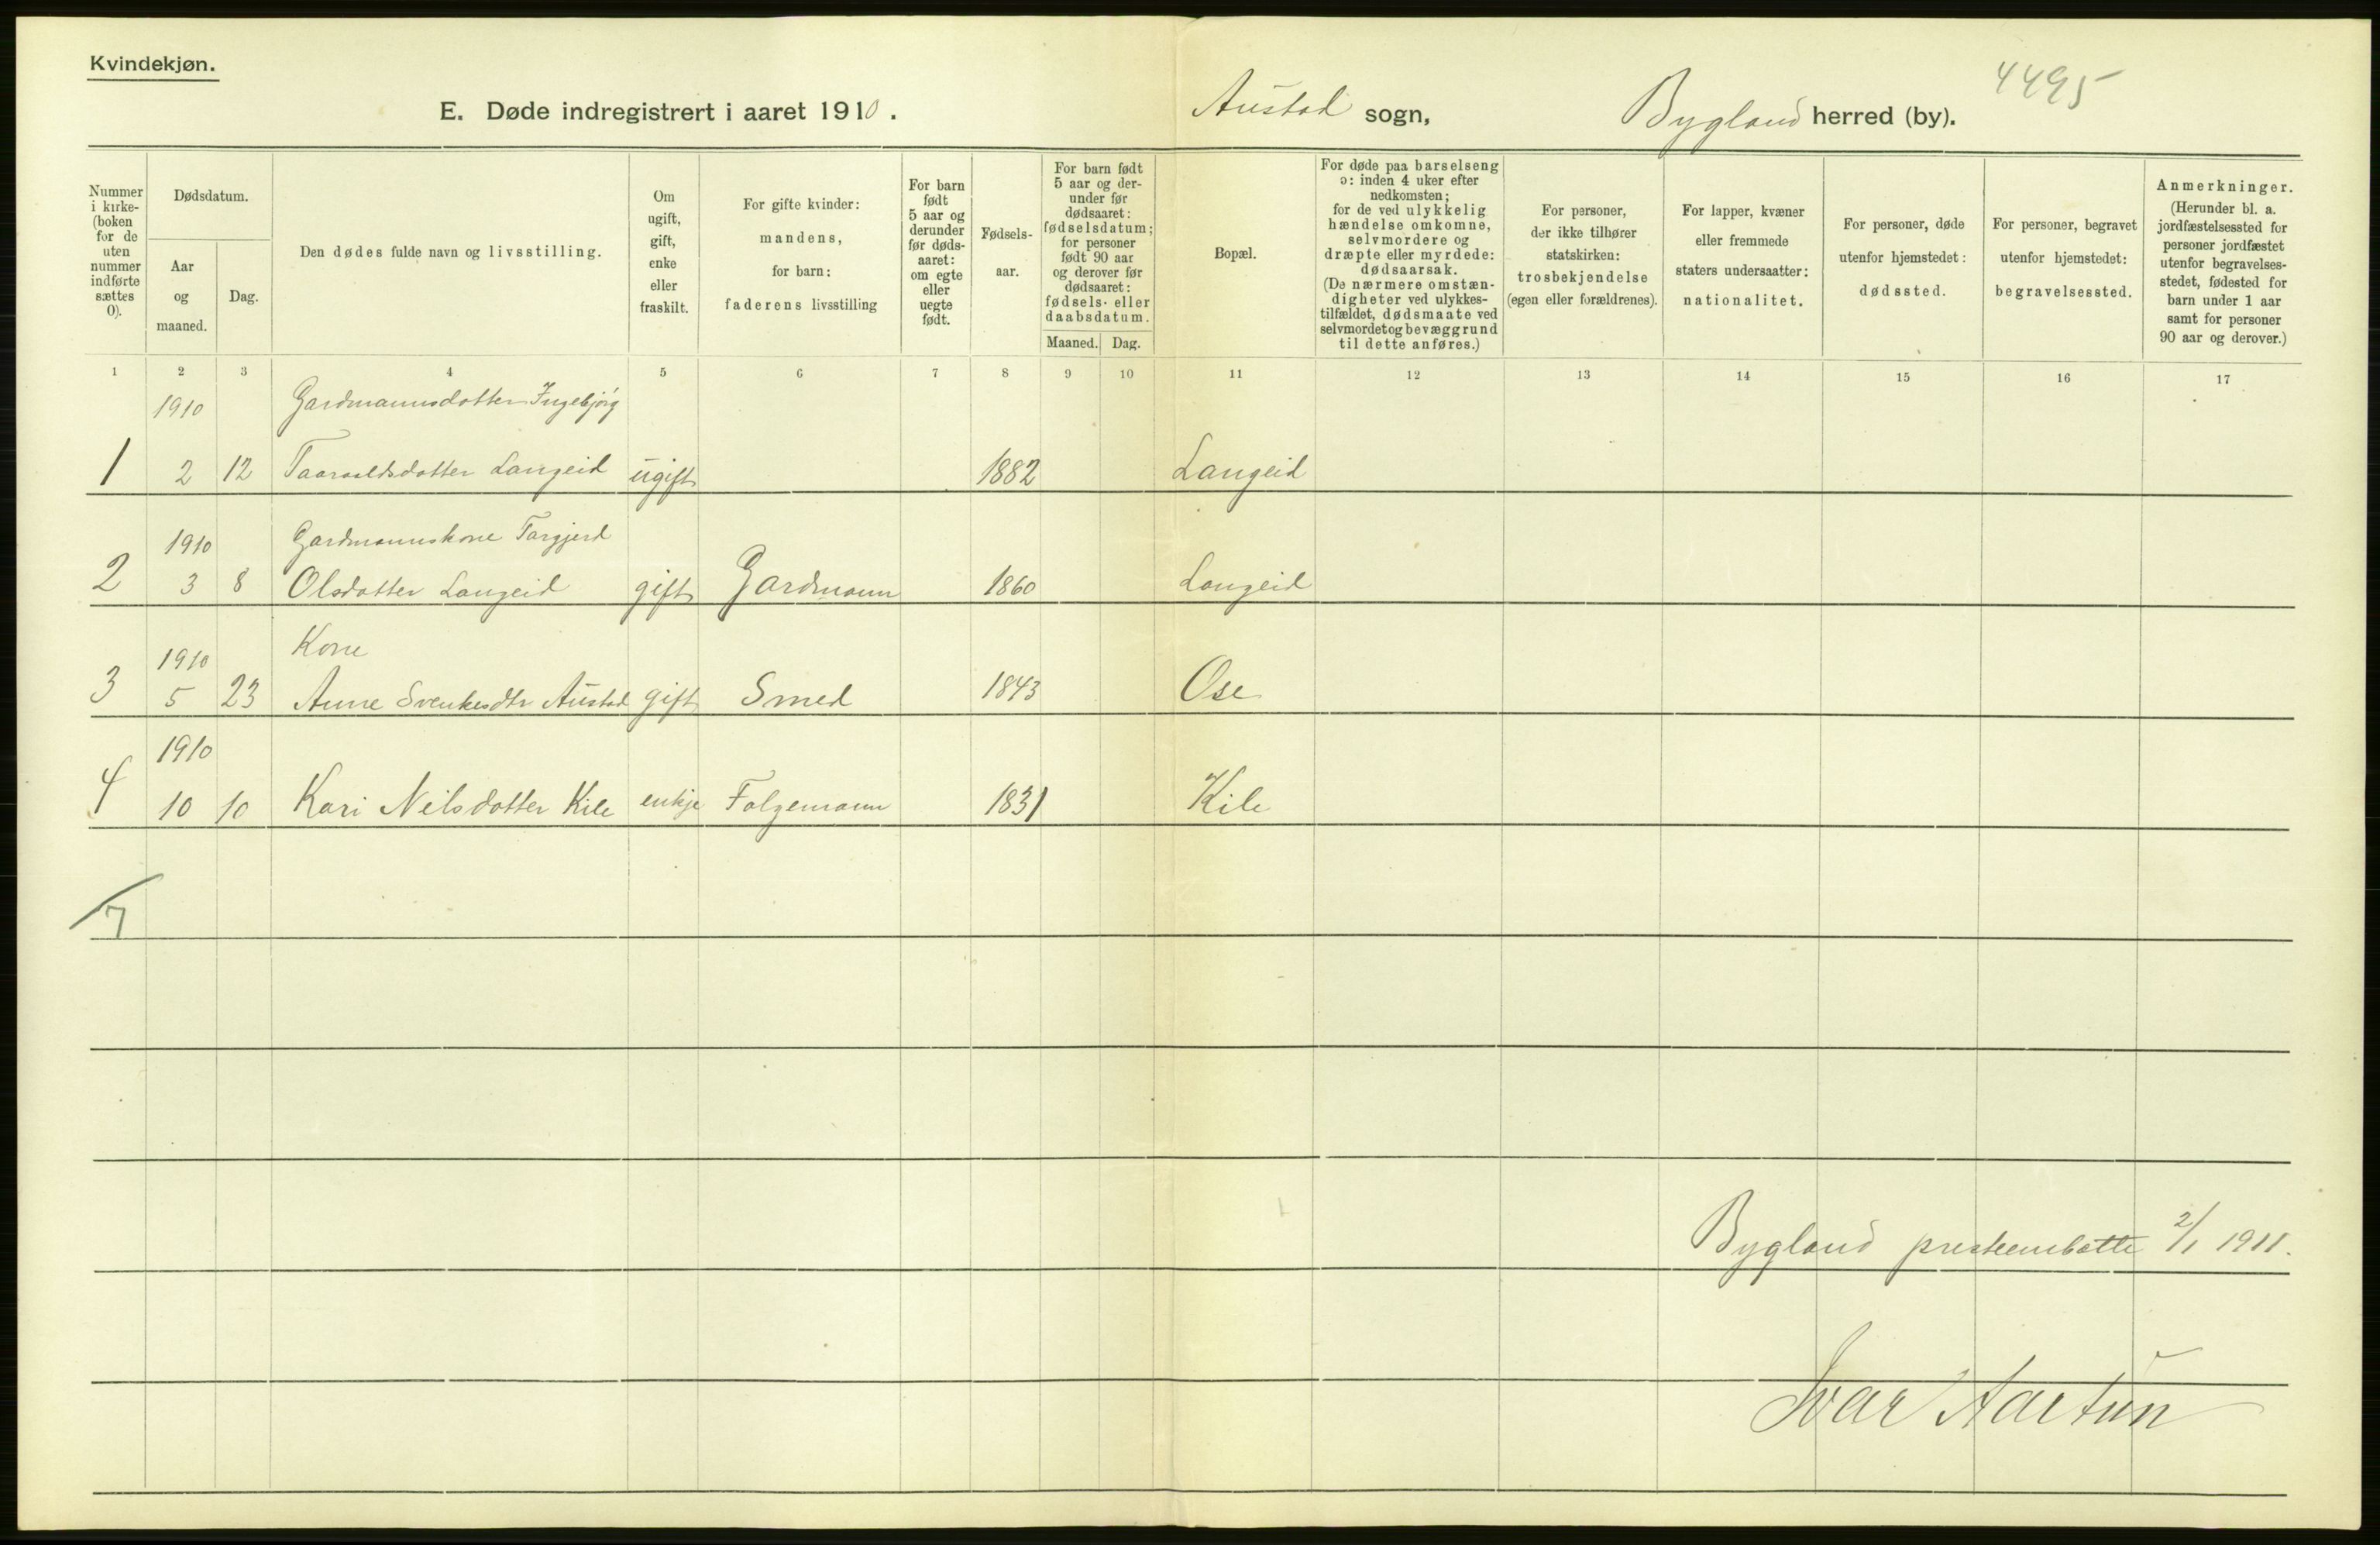 Kvindekjøn.
4495
E. Døde indregistrert i aaret 1910. Austad sogn, Bygland herred (by).
Nummer i kirke- (boken for de uten nummer indførte sættes 0).
Dødsdatum.
Aar og maaned.
Dag.
Den dødes fulde navn og livsstilling.
Om ugift, gift, enke eller fraskilt.
For gifte kvinder: mandens, for barn: faderens livsstilling
For barn født 5 aar og derunder før døds- aaret: om egte eller uegte født.
Fødsels- aar.
For barn født 5 aar og der- under før dødsaaret: fødselsdatum; for personer født 90 aar og derover før dødsaaret: fødsels- eller daabsdatum.
Maaned. Dag.
Bopæl.
For døde paa barselseng ɔ: inden 4 uker efter nedkomsten; for de ved ulykkelig hændelse omkomne, selvmordere og dræpte eller myrdede: dødsaarsak. (De nærmere omstæn- digheter ved ulykkes- tilfældet, dødsmaate ved selvmordet og bevæggrund til dette anføres.)
For personer, der ikke tilhører statskirken: trosbekjendelse (egen eller forældrenes).
For lapper, kvæner eller fremmede staters undersaatter: nationalitet.
For personer, døde utenfor hjemstedet: dødssted.
For personer, begravet utenfor hjemstedet: begravelsessted.
Anmerkninger. (Herunder bl. a. jordfæstelsessted for personer jordfæstet utenfor begravelses- stedet, fødested for barn under 1 aar samt for personer 90 aar og derover.)
1 2 3 4 5 6 7 8 9 10 11 12 13 14 15 16 17
1910 Gardmannsdotter Ingebjørg
1 2 12 Taaraldsdotter Langeid ugift 1882 Langeid
1910 Gardmannskone Targjerd
2 3 8 Olsdotter Langeid gift Gardmann 1860 Langeid
1910 Kone
3 5 23 Anne Svenkesdtr Austad gift Smed 1843 Ose
1910
4 10 10 Kari Nilsdotter Kile enkje Folgemann 1831 Kile
7
Bygland presteembætte 2/1 1911.
Ivar Aartun